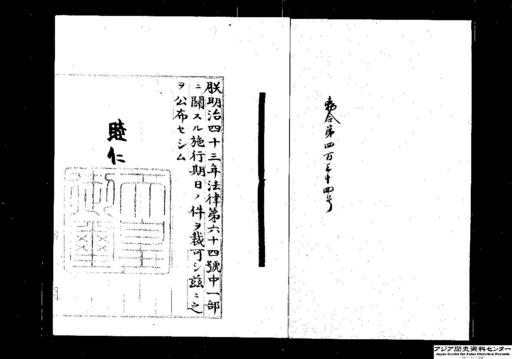 勅令第四百三十四号
朕明治四十三年法律第六十四號中一部
ニ關スル施行期日ノ件ヲ裁可シ茲ニ之
ヲ公布セシム
睦仁
天皇御璽
アジア歴史資料センター
Japan Center for Asian Historical Records